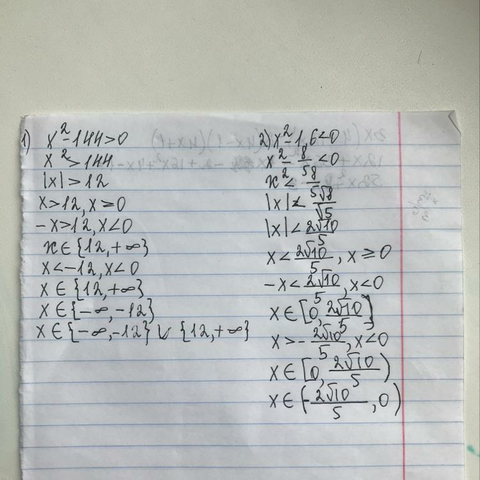 1) x²-144>0
x²>144
|x|>12
x>12, x≥0
-x>12, x<0
x∈{12,+∞}
x<-12, x<0
x∈{12,+∞}
x∈{-∞,-12}
x∈{-∞,-12} ∨ {12,+∞}
2) x²-1,6<0
x²-8/5<0
x²<8/5
|x|<√8/√5
|x|<2√10/5
x<2√10/5, x≥0
-x<2√10/5, x<0
x∈[0,2√10/5]
x>-2√10/5, x<0
x∈[0,2√10/5)
x∈(-2√10/5,0)